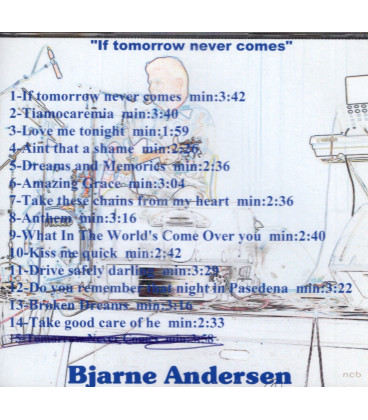 "If tomorrow never comes"
1-If tomorrow never comes min:3:42
2-Tiamocaremia min:3:40
3-Love me tonight min:1:59
4-Aint that a shame min:2:26
5-Dreams and Memories min:2:36
6-Amazing Grace min:3:04
7-Take these chains from my heart min:2:36
8-Anthem min:3:16
9-What In The World's Come Over you min:2:40
10-Kiss me quick min:2:42
11-Drive safely darling min:3:29
12-Do you remember that night in Pasedena min:3:22
13-Broken Dreams min:3:16
14-Take good care of he min:2:33
15-Tomorrow Never Comes min:
Bjarne Andersen
ncb